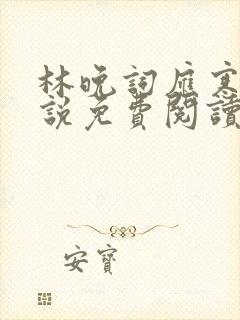 林晚詞雁寒
說免費閱讀
安寶